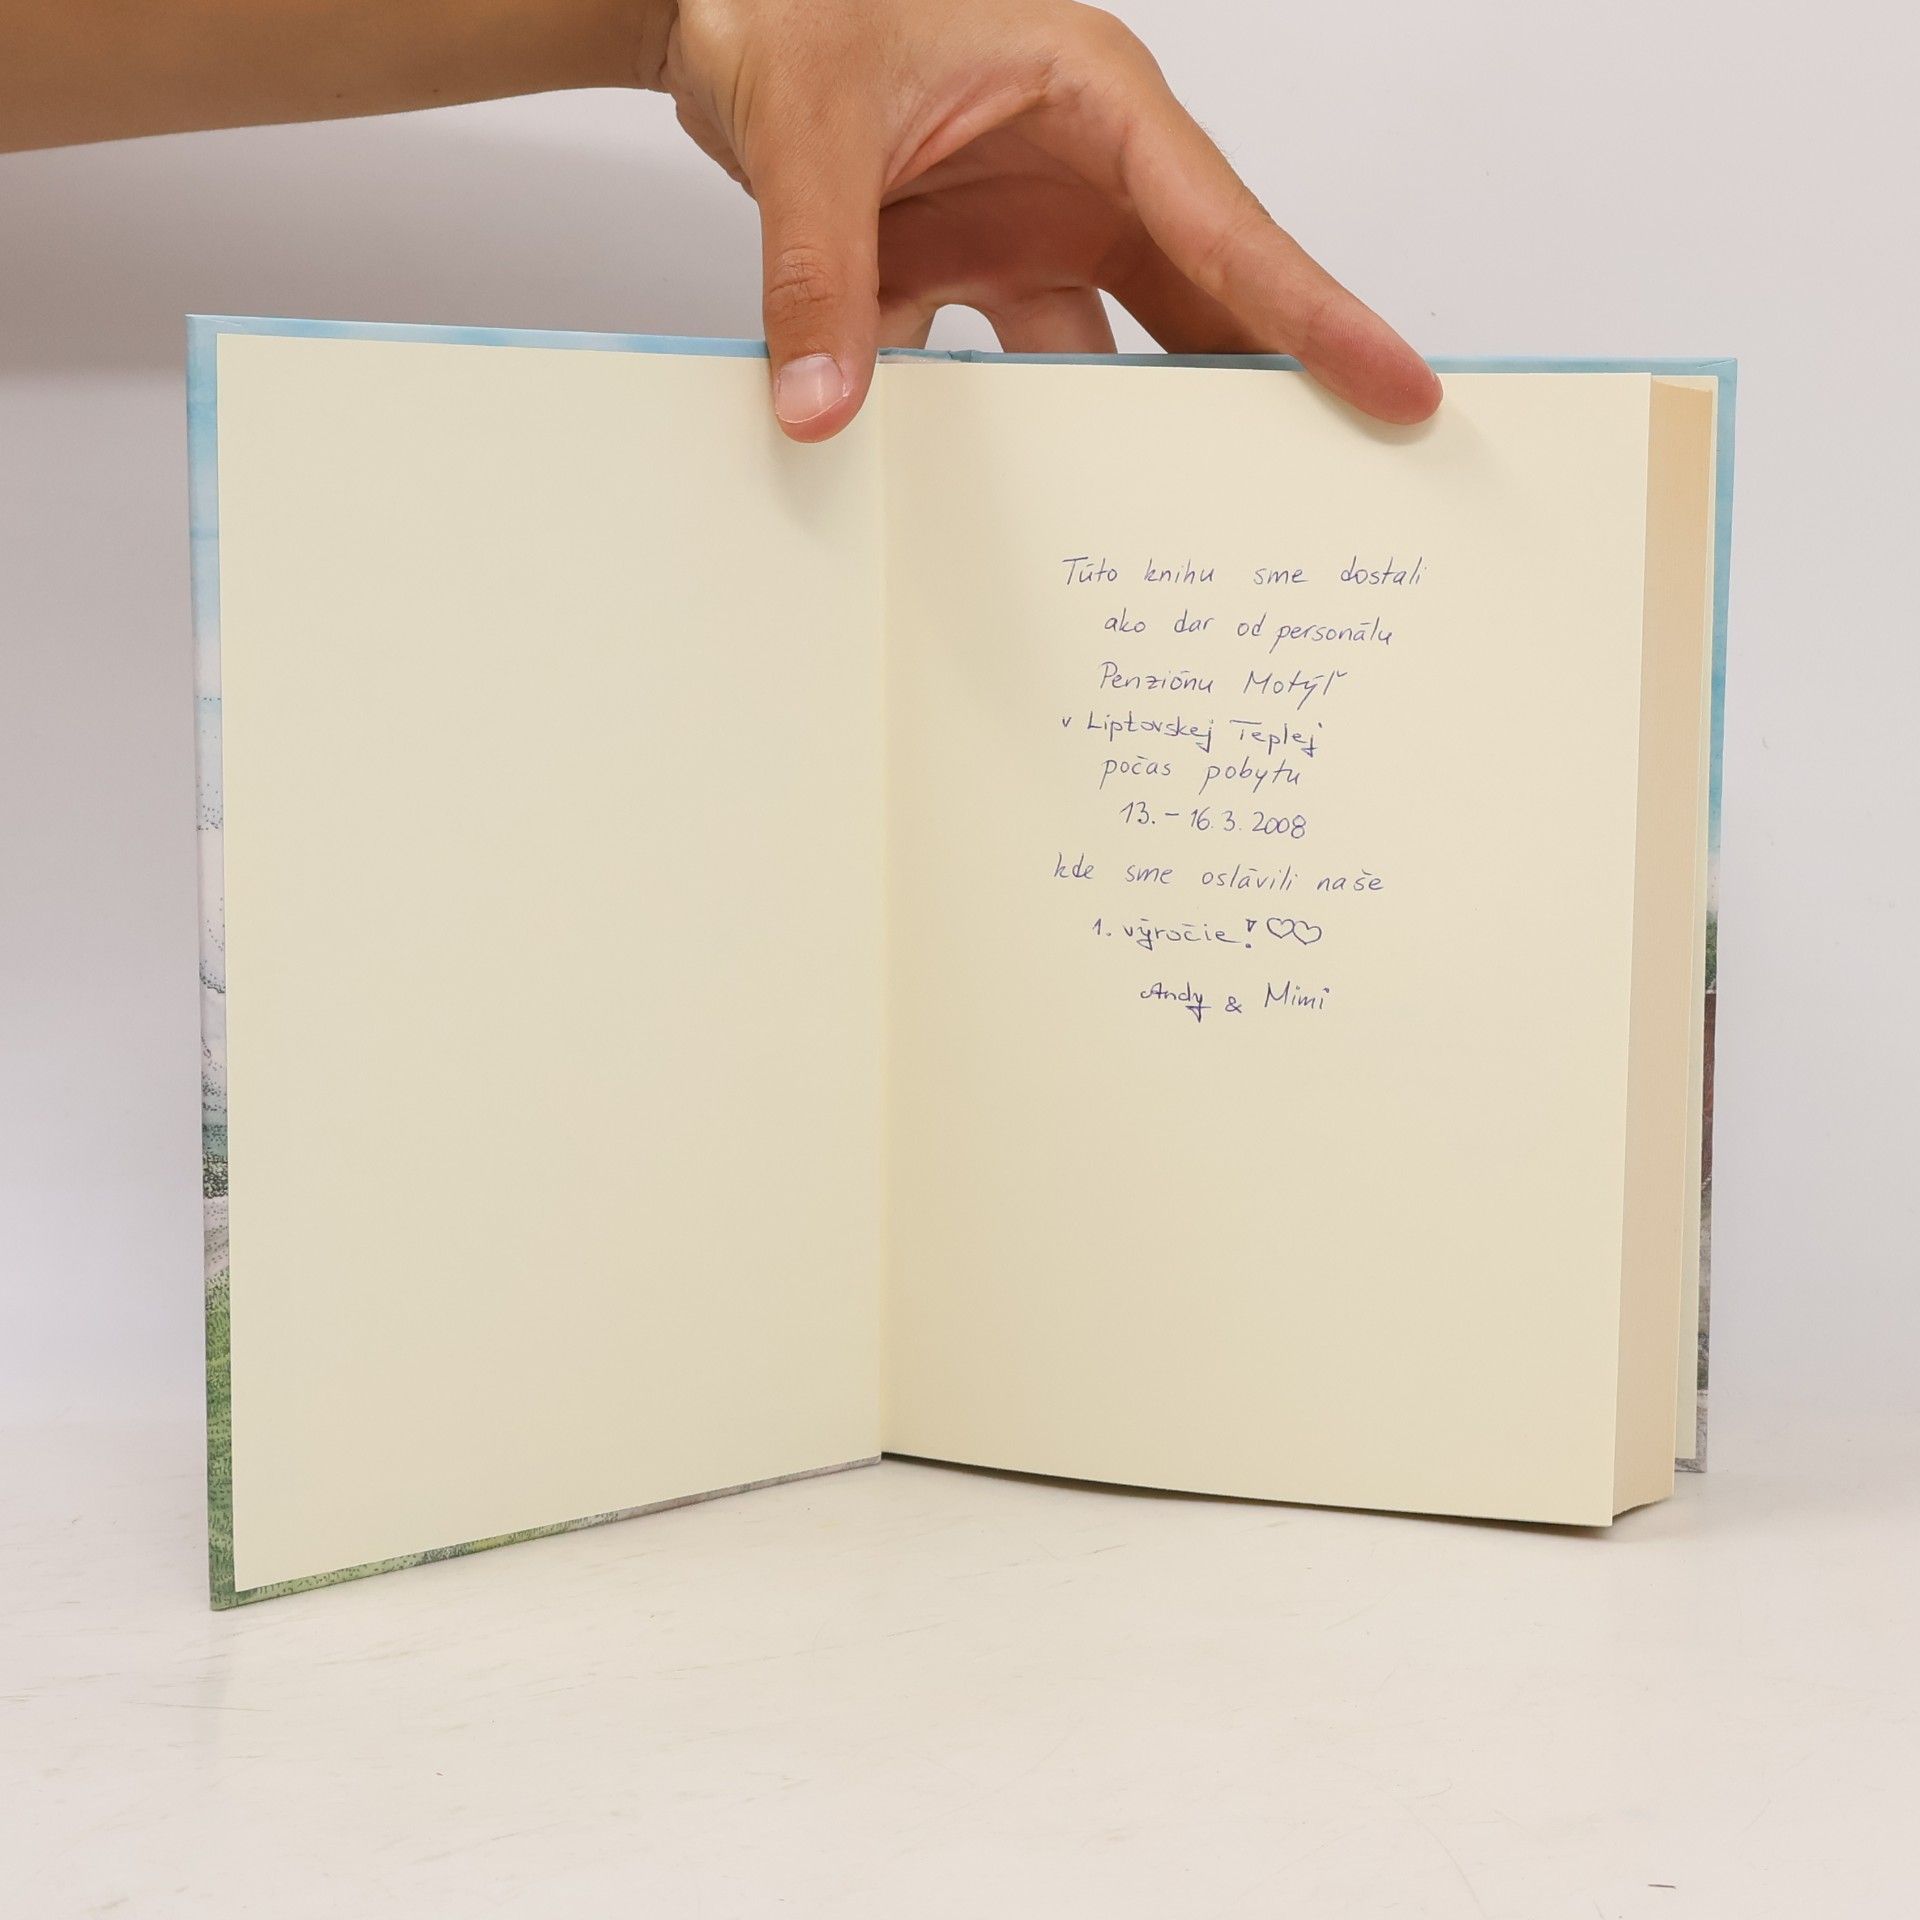 Túto knihu sme dostali
ako dar od personálu
Penziónu Motýľ
v Liptovskej Teplej
počas pobytu
13. - 16.3.2008
kde sme oslávili naše
1. výročie! ♡♡
Andy & Mimi